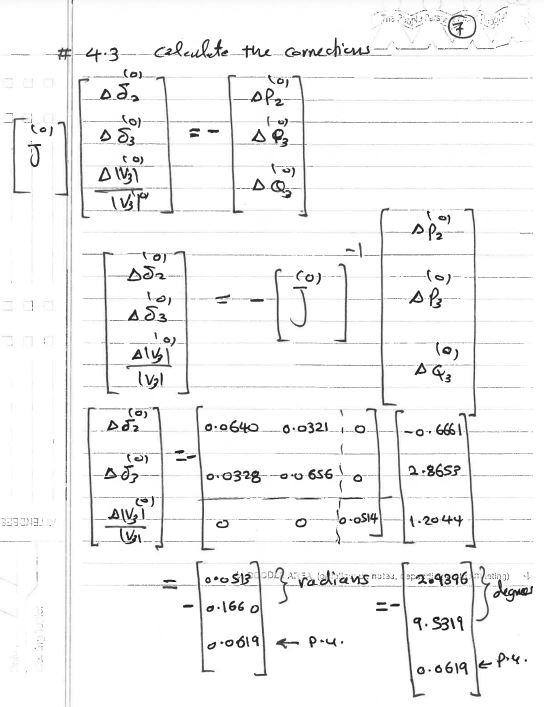 7
# 4.3 calculate the corrections
[J^(0)] [Δδ₂^(0) ; Δδ₃^(0) ; Δ|V₃|^(0) / |V₃|^(0)] = - [ΔP₂^(0) ; ΔP₃^(0) ; ΔQ₃^(0)]
[Δδ₂^(0) ; Δδ₃^(0) ; Δ|V₃|^(0) / |V₃|] = - [J^(0)]^-1 [ΔP₂^(0) ; ΔP₃^(0) ; ΔQ₃^(0)]
[Δδ₂^(0) ; Δδ₃^(0) ; Δ|V₃|^(0) / |V₃|] = - [0.0640 0.0321 0 ; 0.0328 0.0656 0 ; 0 0 0.0514] [-0.6661 ; 2.8653 ; 1.2044]
= - [0.0513 ; 0.1660 ; 0.0619] } radians ← p.u. = - [2.9396 ; 9.5319 ; 0.0619] } degrees ← p.u.